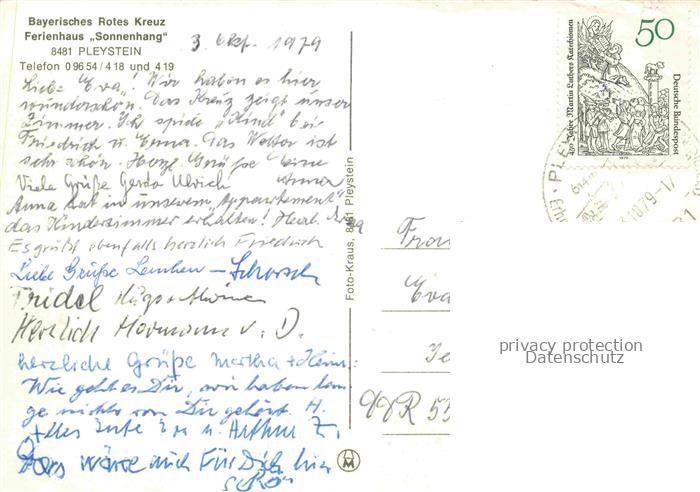 Bayerisches Rotes Kreuz
Ferienhaus „Sonnenhang“
8481 PLEYSTEIN
Telefon 0 96 54 / 4 18 und 4 19
3. Okt. 1979
Liebe Eva! Wir haben es hier
wunderschön. Das Kreuz zeigt unser
Zimmer. Ich spiele „Kind“ bei
Friedrich u. Anna. Das Wetter ist
sehr schön. Herzl. Grüße Eine
Viele Grüße Gerda Ulrich Anna
Anna hat in unserem „Appartement“
das Kinderzimmer erhalten! Herzl.
Es grüßt ebenfalls herzlich Friedrich
Liebe Grüße Lenchen – Schorsch
Fridel Hugo
Herzlich Hermann v. D.
herzliche Grüße Martha + Heinz:
Wie geht es Dir, wir haben lan-
ge nichts von Dir gehört. H.
Alles Gute Eva u. Arthur Z.
Das wäre auch für Dich hier
schön
Foto-Kraus, 8481 Pleystein
50
450 Jahre Martin Luthers Katechismen
Deutsche Bundespost
1979
Frau
Eva
DDR 53
privacy protection
Datenschutz